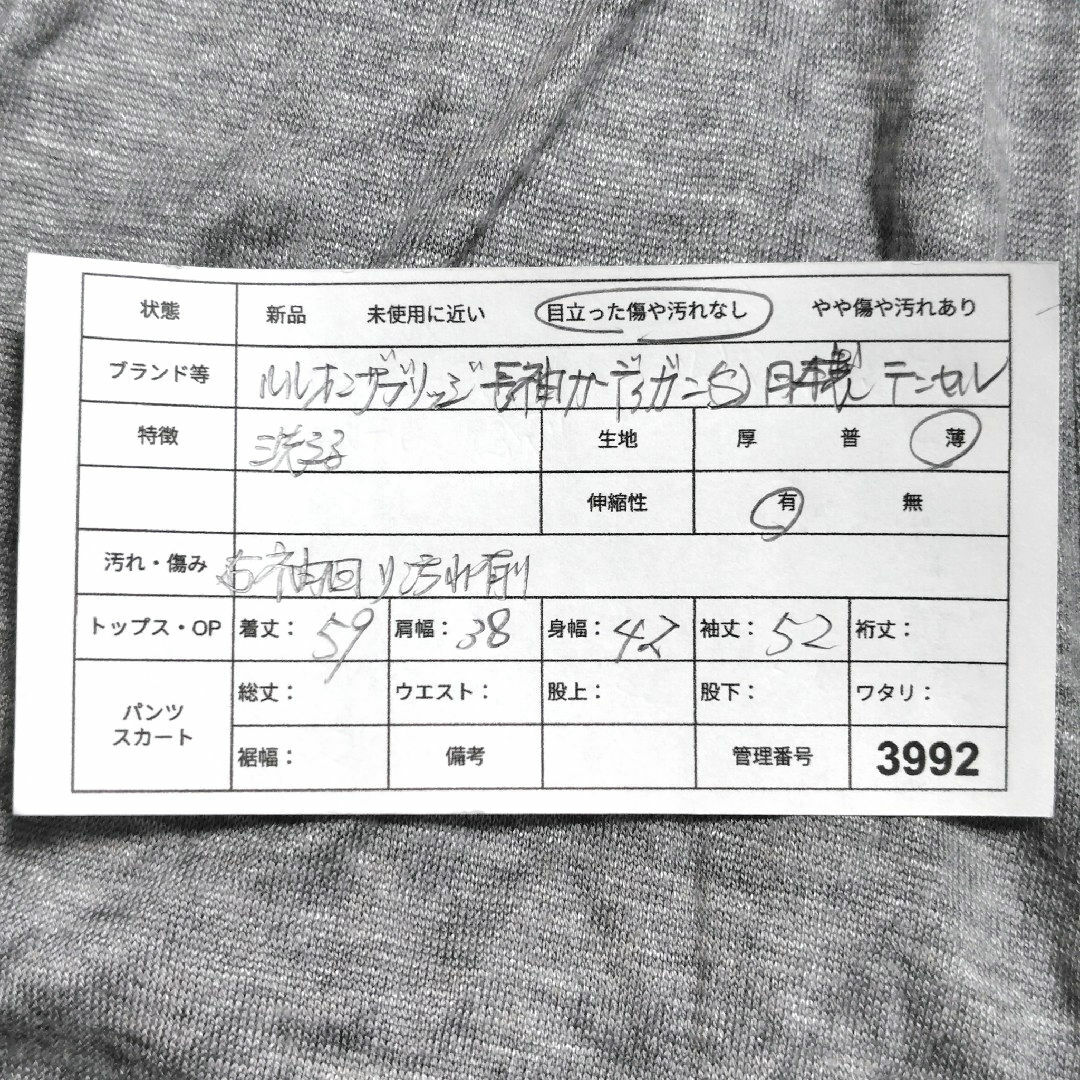 状態 新品 未使用に近い 目立った傷や汚れなし やや傷や汚れあり
ブランド等 ルルオンザブリッジ 長袖カーディガン(S) 日本製 テンセル
特徴 生地 厚 普 薄
伸縮性 有 無
汚れ・傷み 右袖回り汚れ有り
トップス・OP 着丈：59 肩幅：38 身幅：42 袖丈：52 裄丈：
パンツ スカート 総丈： ウエスト： 股上： 股下： ワタリ：
裾幅： 備考 管理番号 3992